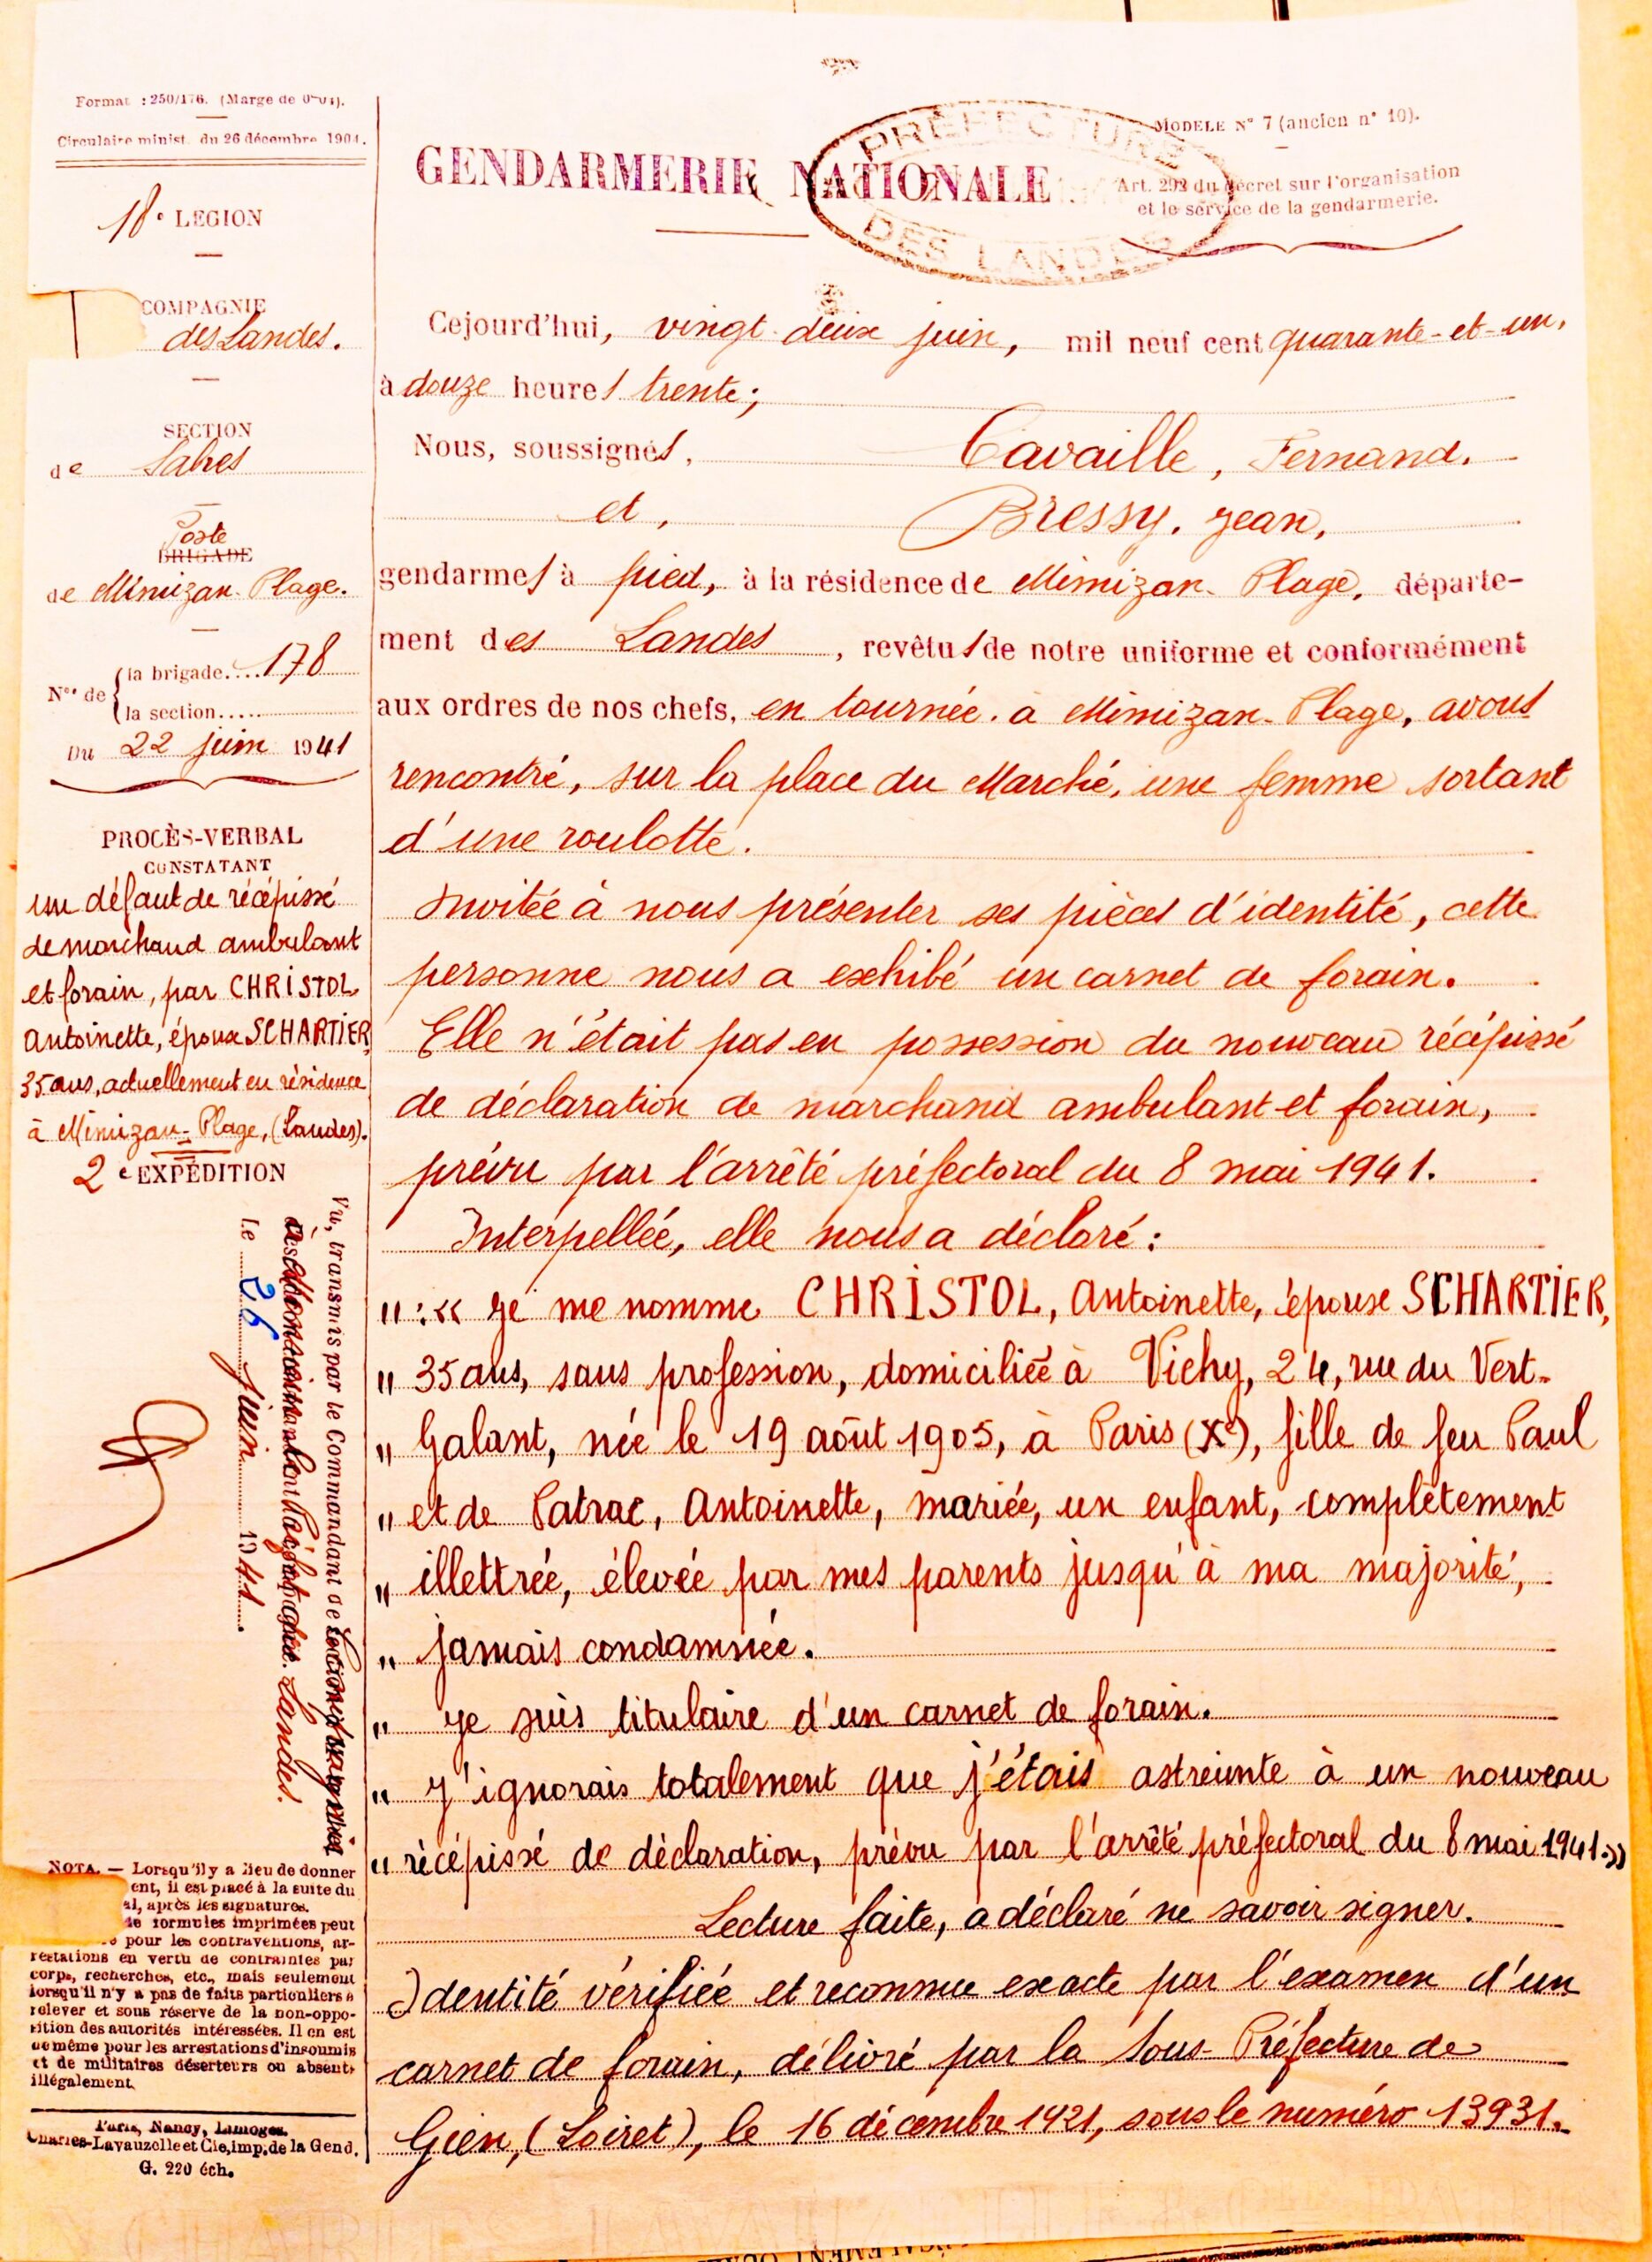 Format : 250/176. (Marge de 0m04).
Circulaire minist. du 26 décembre 1904.
18e LEGION
COMPAGNIE
des Landes.
SECTION
de Sabres
Poste
BRIGADE
de Mimizan-Plage.
Nos de
la brigade.... 178
la section.....
Du 22 juin 1941
PROCÈS-VERBAL
CONSTATANT
un défaut de récépissé
de marchand ambulant
et forain, par CHRISTOL
Antoinette, épouse SCHARTIER
35 ans, actuellement en résidence
à Mimizan-Plage, (Landes).
2e EXPÉDITION
Vu, transmis par le Commandant de
Landes.
Le 26 juin 1941
NOTA. — Lorsqu'il y a lieu de donner
ent, il est placé à la suite du
al, après les signatures.
de formules imprimées peut
pour les contraventions, ar-
restations en vertu de contraintes par
corps, recherches, etc., mais seulement
lorsqu'il n'y a pas de faits particuliers à
relever et sous réserve de la non-oppo-
sition des autorités intéressées. Il en est
de même pour les arrestations d'insoumis
et de militaires déserteurs ou absents
illégalement.
Paris, Nancy, Limoges.
Charles-Lavauzelle et Cie, imp. de la Gend.
G. 220 éch.
PRÉFECTURE
DES LANDES
MODELE N° 7 (ancien n° 10).
GENDARMERIE NATIONALE
Art. 292 du décret sur l'organisation
et le service de la gendarmerie.
Cejourd'hui, vingt-deux juin, mil neuf cent quarante-et-un,
à douze heures trente;
Nous, soussignés, Cavaille, Fernand.
et, Bressy, Jean,
gendarmes à pied, à la résidence de Mimizan-Plage, départe-
ment des Landes, revêtus de notre uniforme et conformément
aux ordres de nos chefs, en tournée à Mimizan-Plage, avons
rencontré, sur la place du Marché, une femme sortant
d'une roulotte.
Invitée à nous présenter ses pièces d'identité, cette
personne nous a exhibé un carnet de forain.
Elle n'était pas en possession du nouveau récépissé
de déclaration de marchand ambulant et forain,
prévu par l'arrêté préfectoral du 8 mai 1941.
Interpellée, elle nous a déclaré :
" : « Je me nomme CHRISTOL, Antoinette, épouse SCHARTIER,
" 35 ans, sans profession, domiciliée à Vichy, 24, rue du Vert-
" Galant, née le 19 août 1905, à Paris (Xe), fille de feu Paul
" et de Patrac, Antoinette, mariée, un enfant, complètement
" illettrée, élevée par mes parents jusqu'à ma majorité,
" jamais condamnée.
" Je suis titulaire d'un carnet de forain.
" J'ignorais totalement que j'étais astreinte à un nouveau
" récépissé de déclaration, prévu par l'arrêté préfectoral du 8 mai 1941. »
Lecture faite, a déclaré ne savoir signer.
Identité vérifiée et reconnue exacte par l'examen d'un
carnet de forain, délivré par la Sous-Préfecture de
Gien, (Loiret), le 16 décembre 1921, sous le numéro 13931.